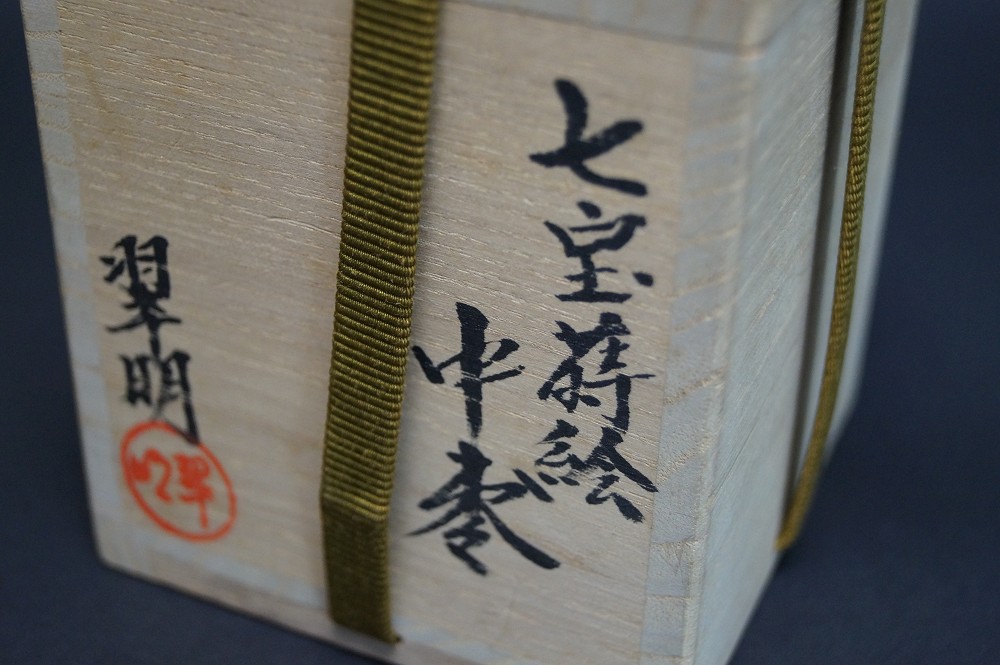 七宝蒔絵
中棗
翠明